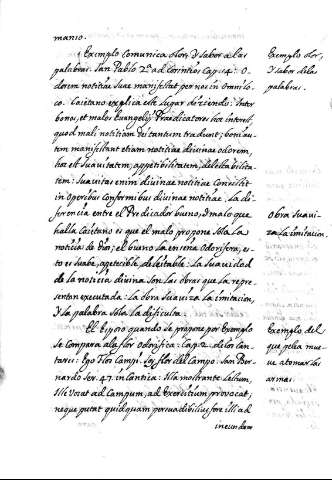 manio.
Exemplo comunica olor, y sabor a las
palabras. San Pablo 2ª ad Corintios Cap. 4. O-
dorem notitiæ suæ manifestat per nos in omni lo-
co. Caietano explica este lugar diciendo: Inter
bonos, et malos Evangelij Prædicatores hoc interest,
quod mali notitiam Dei tantum tradunt; boni au-
tem manifestant etiam notitiæ divinæ odorem,
hoc est suavitatem, appetibilitatem, delectabilita-
tem: Suavitas enim divinæ notitiæ Consistit
in operibus Conformibus divinæ notitiæ. La di-
ferencia entre el Predicador bueno, y malo que
halla Caietano es que el malo propone sola la
noticia de Dios; el bueno la enseña odorifera, es-
to es suabe, apetecible, deleitable: la suavidad
de la noticia divina son las obras que la repre-
sentan executada: La obra suaviza la imitacion,
y la palabra sola la dificulta.
El Espozo quando se propone por Exemplo
se Compara a la flor odorifica: Cap. 2 de los Can-
tares: Ego Flos Campi, soy flor del Campo. San Ber-
nardo Ser. 47. in Cantica: Illa monstrante lectum,
Ille vocat ad Campum, ad Exercitium provocat,
neque putat quidquam persuadibilius fore illi ad
ineundum
Exemplo olor,
y sabor de las
palabras.
Obra suavi-
za la imitacion.
Exemplo del
que pelea mue-
ve a tomar las
armas.